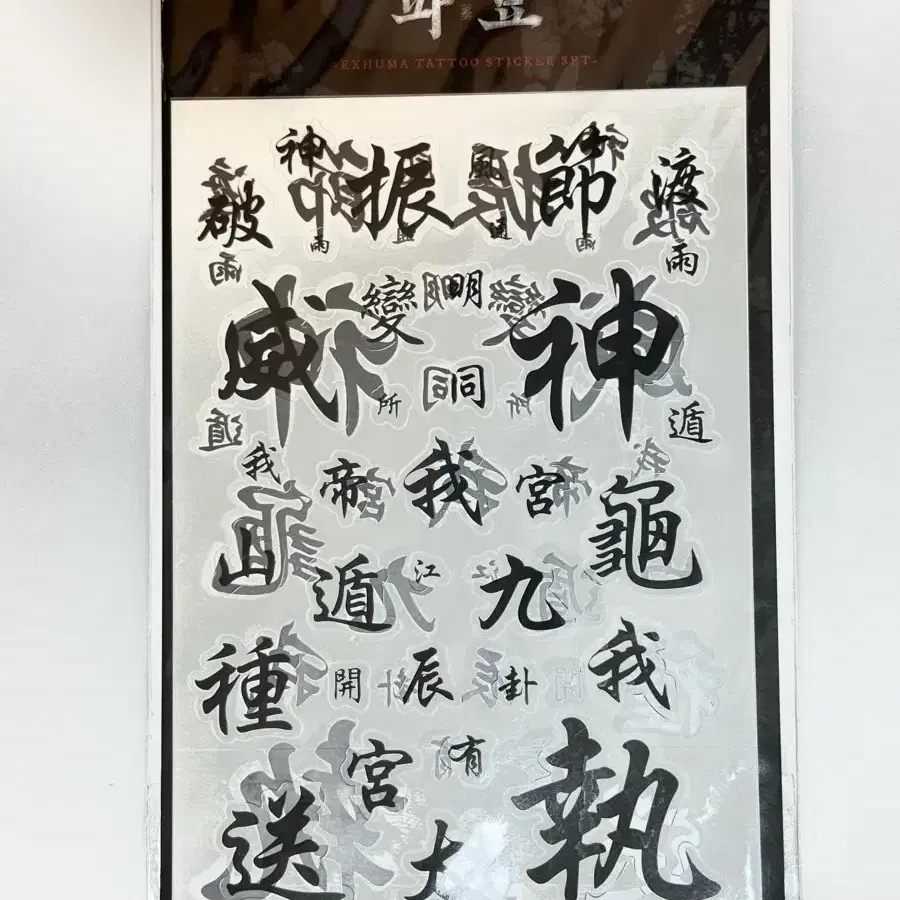 파묘
-EXHUMA TATTOO STICKER SET-
神 振 風 節
破 渡
雨 雨 雨 雨
變 明
威 神
所 洞 所
遁 遁
我
帝 我 宮
山 龜
遁 江 九
種 開 辰 卦 我
宮 有
送 大 執